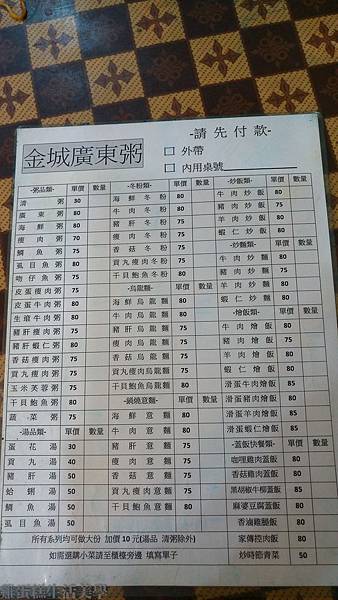 -請先付款-
金城廣東粥
外帶
內用桌號
-粥品類- 單價 數量
清粥 30
廣東粥 80
海鮮粥 80
瘦肉粥 70
鯛魚粥 75
虱目魚粥 80
吻仔魚粥 75
皮蛋瘦肉粥 75
皮蛋牛肉粥 80
生滾牛肉粥 80
豬肝瘦肉粥 75
豬肝蝦仁粥 80
香菇瘦肉粥 75
貢丸瘦肉粥 75
玉米芙蓉粥 75
干貝鮑魚粥 80
蔬菜粥 75
-湯品類- 單價 數量
蛋花湯 30
貢丸湯 40
豬肝湯 50
蛤蜊湯 50
鯛魚湯 50
虱目魚湯 50
-冬粉類- 單價 數量
海鮮冬粉 80
牛肉冬粉 80
豬肝冬粉 75
瘦肉冬粉 75
香菇冬粉 75
貢丸瘦肉冬粉 75
干貝鮑魚冬粉 80
-烏龍麵- 單價 數量
海鮮烏龍麵 80
牛肉烏龍麵 80
豬肝烏龍麵 75
瘦肉烏龍麵 75
香菇烏龍麵 75
貢丸瘦肉烏龍麵 75
干貝鮑魚烏龍麵 80
-鍋燒意麵- 單價 數量
海鮮意麵 80
牛肉意麵 80
豬肝意麵 75
瘦肉意麵 75
香菇意麵 75
貢丸瘦肉意麵 75
干貝鮑魚意麵 80
-炒飯類- 單價 數量
牛肉炒飯 80
豬肉炒飯 75
羊肉炒飯 80
蝦仁炒飯 80
-炒麵類- 單價 數量
牛肉炒麵 80
豬肉炒麵 75
羊肉炒麵 80
蝦仁炒麵 80
-燴飯類- 單價 數量
牛肉燴飯 80
豬肉燴飯 75
羊肉燴飯 80
蝦仁燴飯 80
滑蛋牛肉燴飯 85
滑蛋豬肉燴飯 80
滑蛋羊肉燴飯 85
滑蛋蝦仁燴飯 85
-蓋飯快餐類- 單價 數量
咖哩雞肉蓋飯 80
香菇雞肉蓋飯 80
黑胡椒牛柳蓋飯 85
麻婆豆腐蓋飯 80
香滷雞腿飯 80
家傳控肉飯 80
炒時節青菜 50
所有系列均可做大份 加價10元(湯品 清粥除外)
如需選購小菜請至櫃檯旁邊 填寫單子
雞蛋糕生活美學